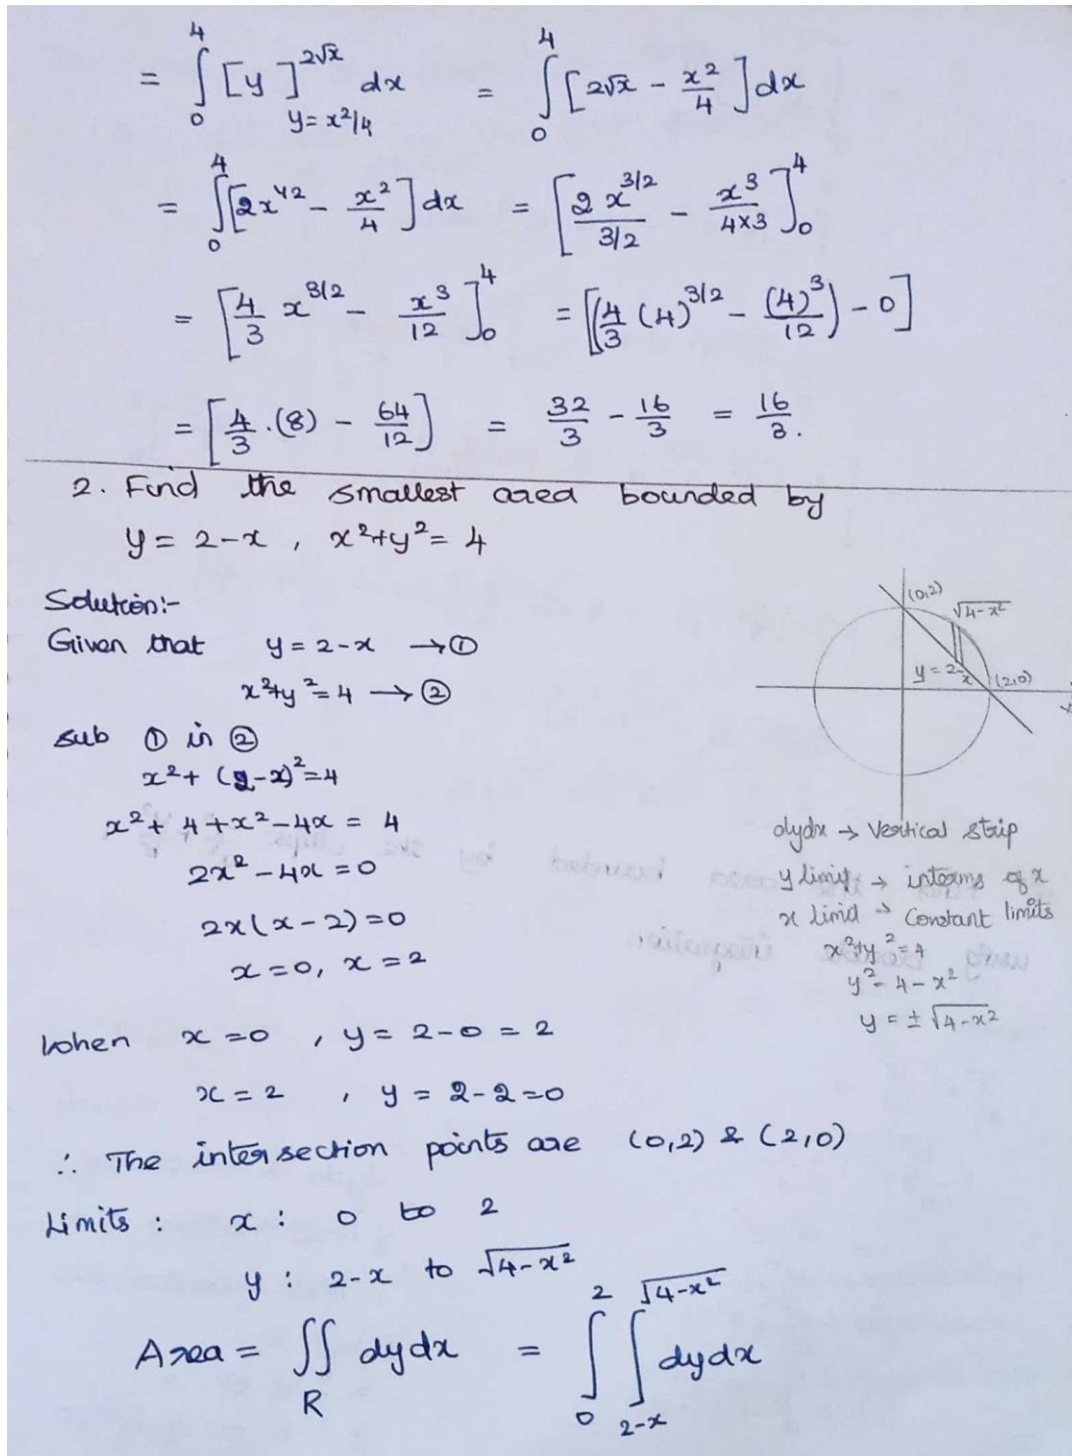 = ∫₀⁴ [y]_{y=x²/4}^{2√x} dx = ∫₀⁴ [2√x - x²/4] dx
= ∫₀⁴ [2x^{1/2} - x²/4] dx = [2 x^{3/2}/(3/2) - x³/(4×3)]₀⁴
= [4/3 x^{3/2} - x³/12]₀⁴ = [(4/3 (4)^{3/2} - (4)³/12) - 0]
= [4/3 .(8) - 64/12] = 32/3 - 16/3 = 16/3.
2. Find the smallest area bounded by
y = 2-x , x²+y² = 4
Solution:-
Given that y = 2-x → ①
x²+y² = 4 → ②
sub ① in ②
x² + (2-x)² = 4
x² + 4 + x² - 4x = 4
2x² - 4x = 0
2x(x-2) = 0
x = 0, x = 2
When x = 0 , y = 2-0 = 2
x = 2 , y = 2-2 = 0
∴ The intersection points are (0,2) & (2,0)
Limits : x : 0 to 2
y : 2-x to √4-x²
Area = ∫∫_R dydx = ∫₀² ∫_{2-x}^{√4-x²} dydx
(0,2)
√4-x²
y = 2-x
(2,0)
dydx → Vertical strip
y limit → interms of x
x limit → Constant limits
x²+y² = 4
y² = 4-x²
y = ± √4-x²